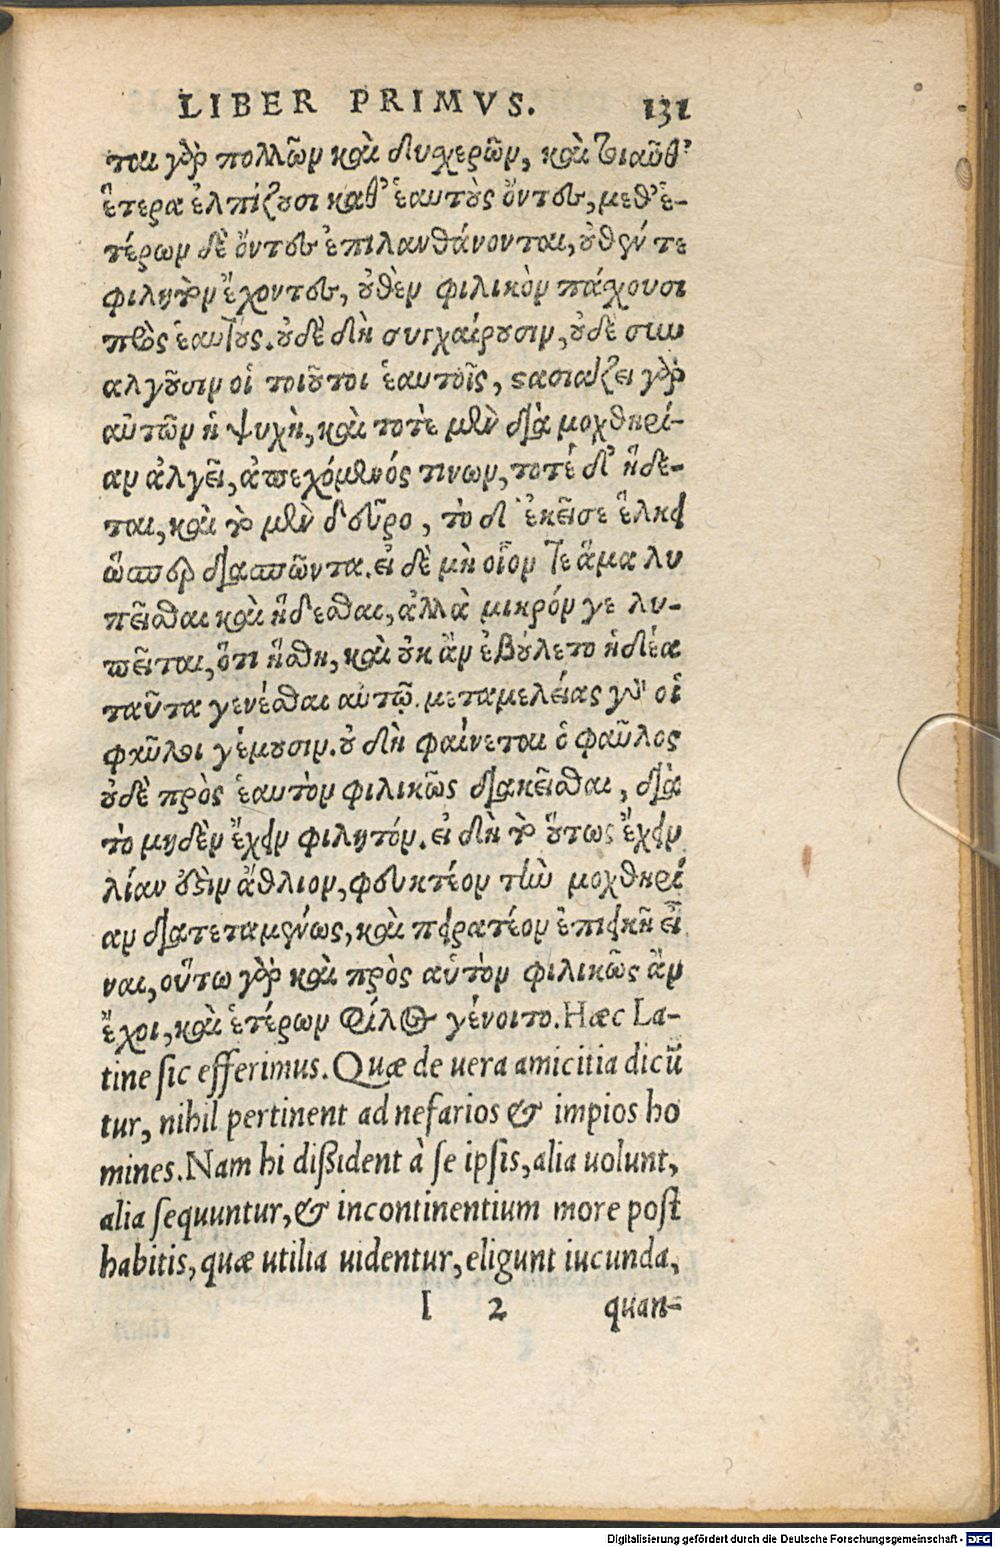 LIBER PRIMVS. 131
ται γὰρ πολλῶν καὶ δυχερῶν, καὶ τοιαῦθ᾽
ἕτερα ἐλπίζουσι καθ᾽ ἑαυτοὺς ὄντες, μεθ᾽ ἑ-
τέρων δὲ ὄντες ἐπιλανθάνονται, οὐθέν τε
φιλητὸν ἔχοντες, οὐθὲν φιλικὸν πάχουσι
πρὸς ἑαυτούς. οὐδὲ δὴ συγχαίρουσιν, οὐδὲ συν
αλγοῦσιν οἱ τοιοῦτοι ἑαυτοῖς, στασιάζει γὰρ
αὐτῶν ἡ ψυχὴ, καὶ τοτὲ μὲν διὰ μοχθηρί-
αν ἀλγεῖ, ἀπεχόμενός τινων, τοτέ δ᾽ ἥδε-
ται, καὶ τὸ μὲν δεῦρο, τὸ δ᾽ ἐκεῖσε ἕλκει
ὥσπερ διασπῶντα. εἰ δὲ μὴ οἷον τε ἅμα λυ
πεῖσθαι καὶ ἥδεσθαι, ἀλλὰ μικρόν γε λυ-
πεῖται, ὅτι ἥσθη, καὶ οὐκ ἂν ἐβούλετο ἡδέα
ταῦτα γενέσθαι αὐτῷ. μεταμελείας γὰρ οἱ
φαῦλοι γέμουσιν. οὐ δὴ φαίνεται ὁ φαῦλος
οὐδὲ πρὸς ἑαυτὸν φιλικῶς διακεῖσθαι, διὰ
τὸ μηδὲν ἔχειν φιλητόν. εἰ δὴ τὸ οὕτως ἔχειν
λίαν ἐστὶν ἄθλιον, φευκτέον τὴν μοχθηρί
αν διατεταμένως, καὶ πειρατέον ἐπιεικῆ εἶ
ναι, οὕτω γὰρ καὶ πρὸς αὑτὸν φιλικῶς ἂν
ἔχοι, καὶ ἑτέρων φίλος γένοιτο. Hæc La-
tine sic efferimus. Quæ de uera amicitia dicũ
tur, nihil pertinent ad nefarios & impios ho
mines. Nam hi dißident à se ipsis, alia uolunt,
alia sequuntur, & incontinentium more post
habitis, quæ utilia uidentur, eligunt iucunda,
I 2 quan-
Digitalisierung gefördert durch die Deutsche Forschungsgemeinschaft - DFG